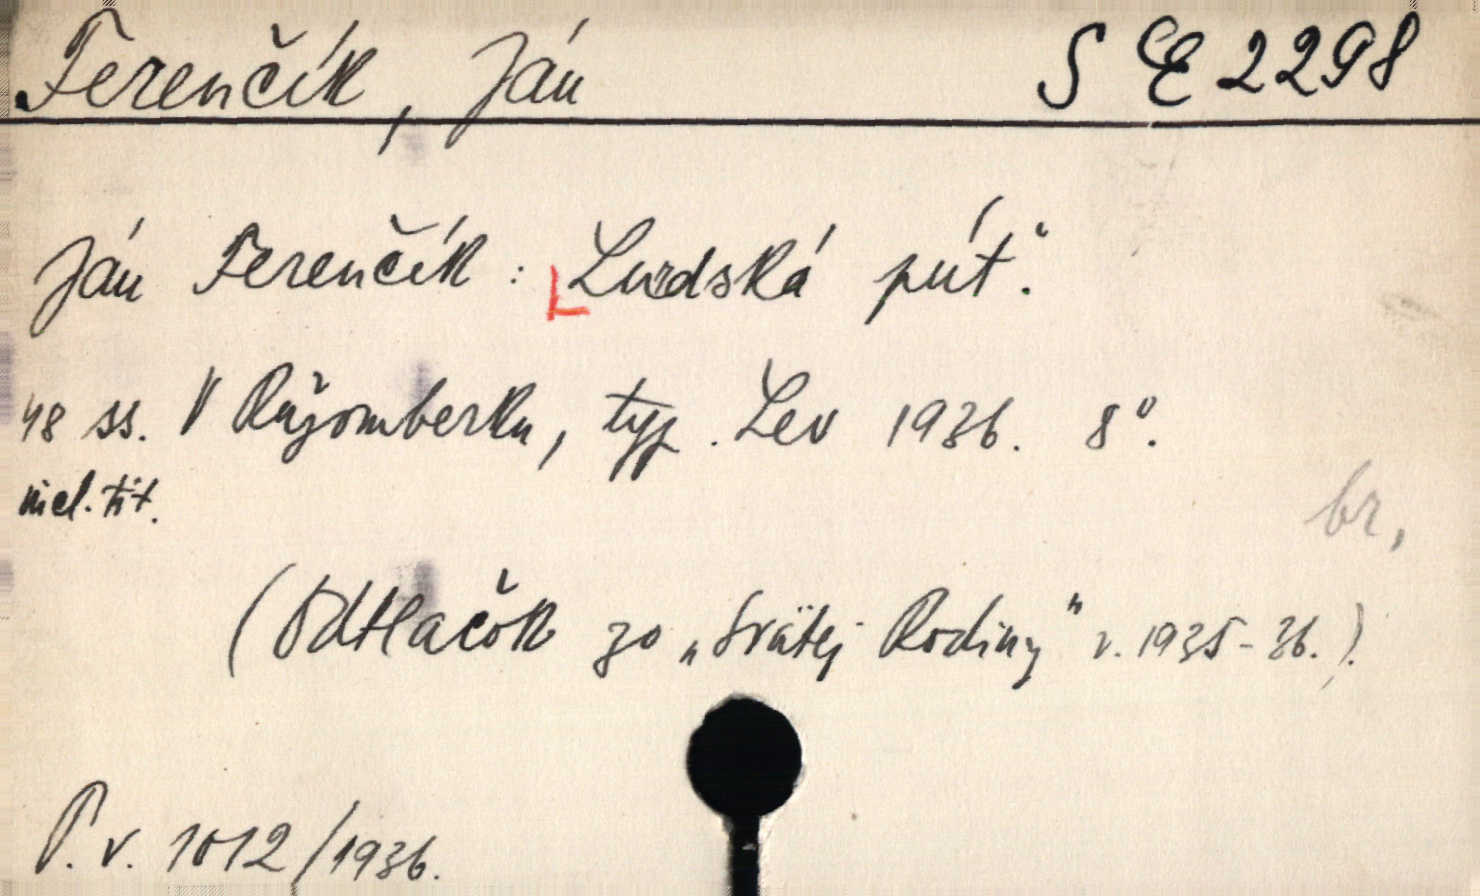 Ferenčík, Ján S E 2298
Ján Ferenčík: Lurdská púť.
48 ss. V Ružomberku, typ. Lev 1936. 8°.
incl. tit.
br,
(Odtlačok zo „Svätej Rodiny" r. 1935-36.).
P. v. 1012/1936.